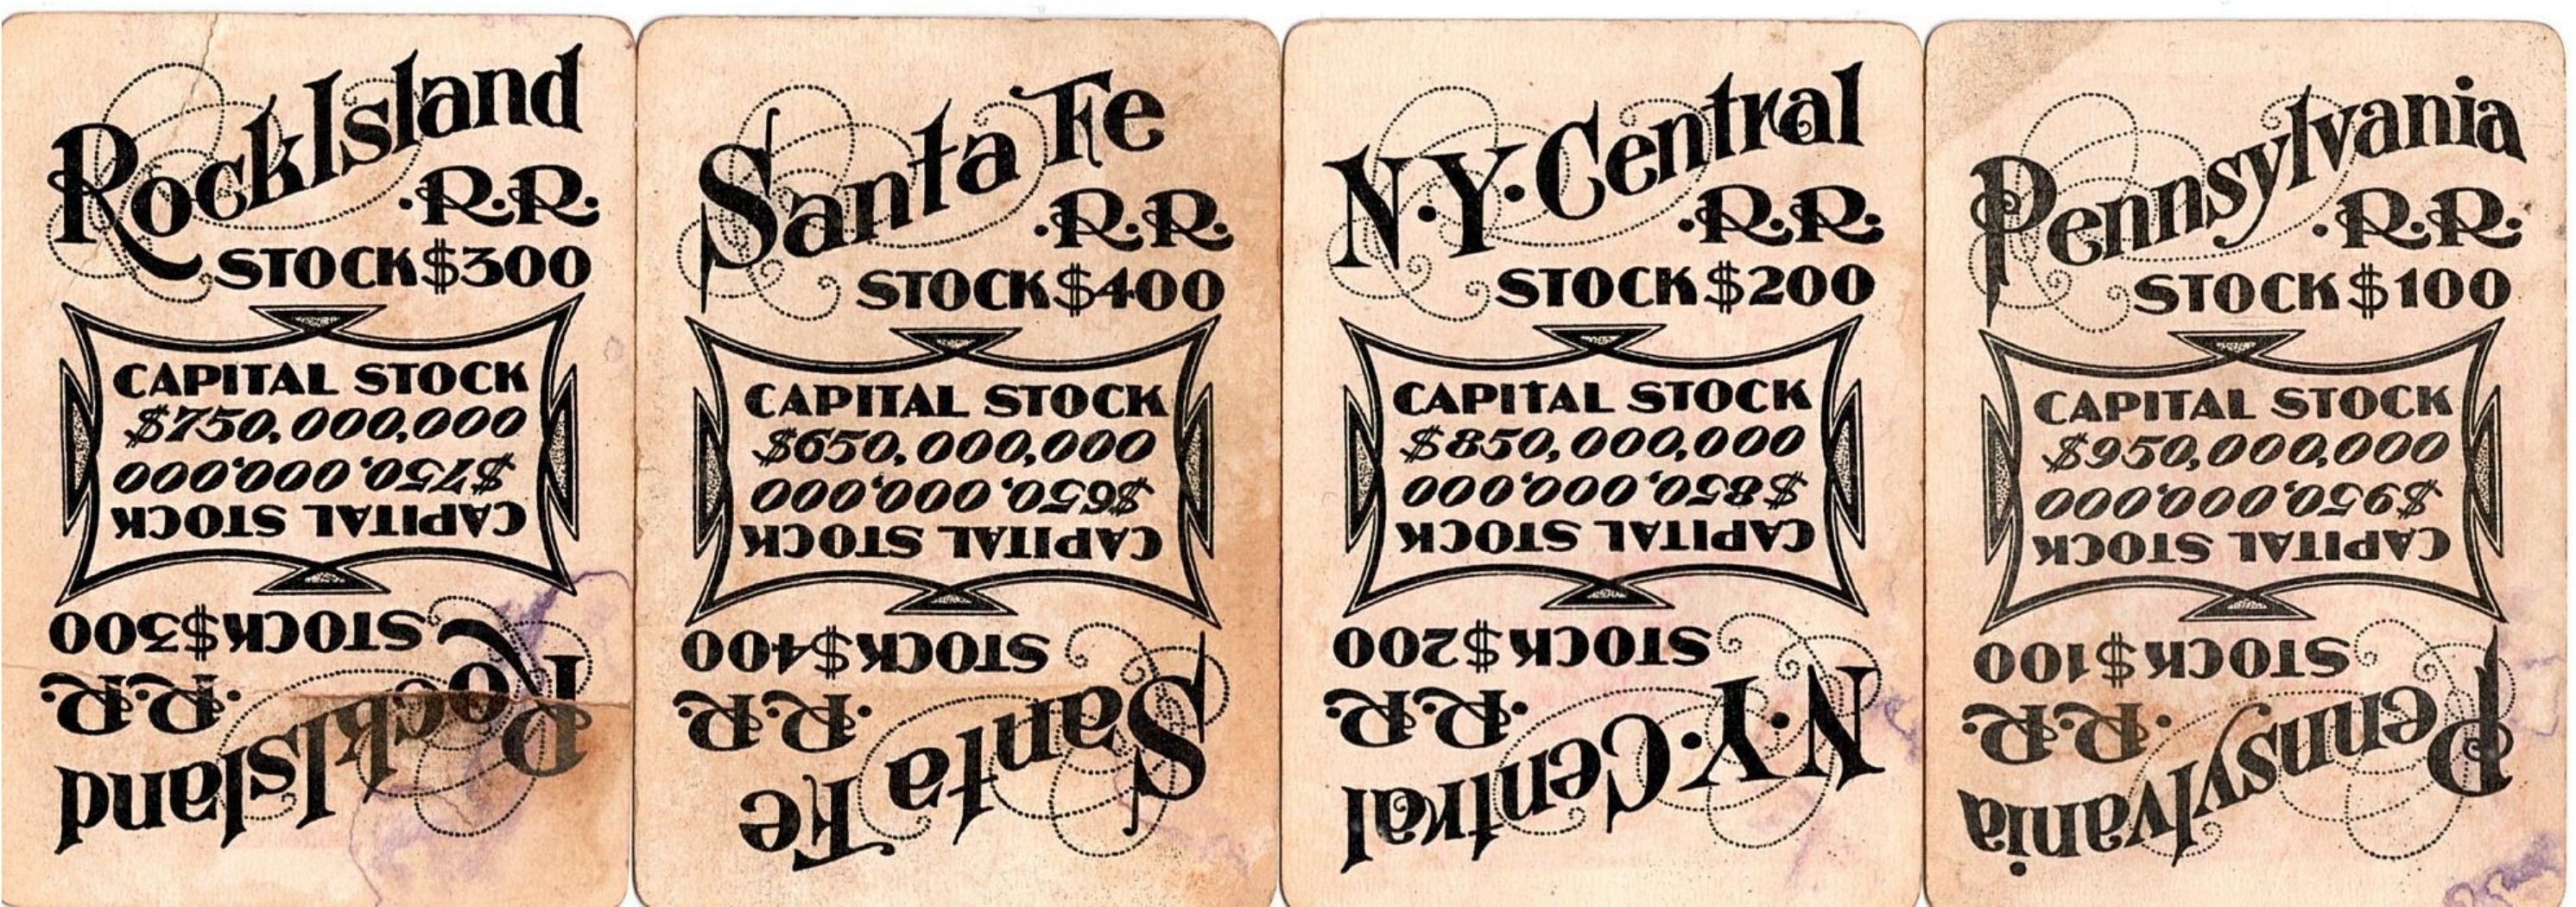 Rock Island
·R.R.
STOCK $300
CAPITAL STOCK
$750,000,000
$750,000,000
CAPITAL STOCK
STOCK $300
·R.R.
Rock Island
Santa Fe
·R.R.
STOCK $400
CAPITAL STOCK
$650,000,000
$650,000,000
CAPITAL STOCK
STOCK $400
·R.R.
Santa Fe
N·Y·Central
·R.R.
STOCK $200
CAPITAL STOCK
$850,000,000
$850,000,000
CAPITAL STOCK
STOCK $200
·R.R.
N·Y·Central
Pennsylvania
·R.R.
STOCK $100
CAPITAL STOCK
$950,000,000
$950,000,000
CAPITAL STOCK
STOCK $100
·R.R.
Pennsylvania